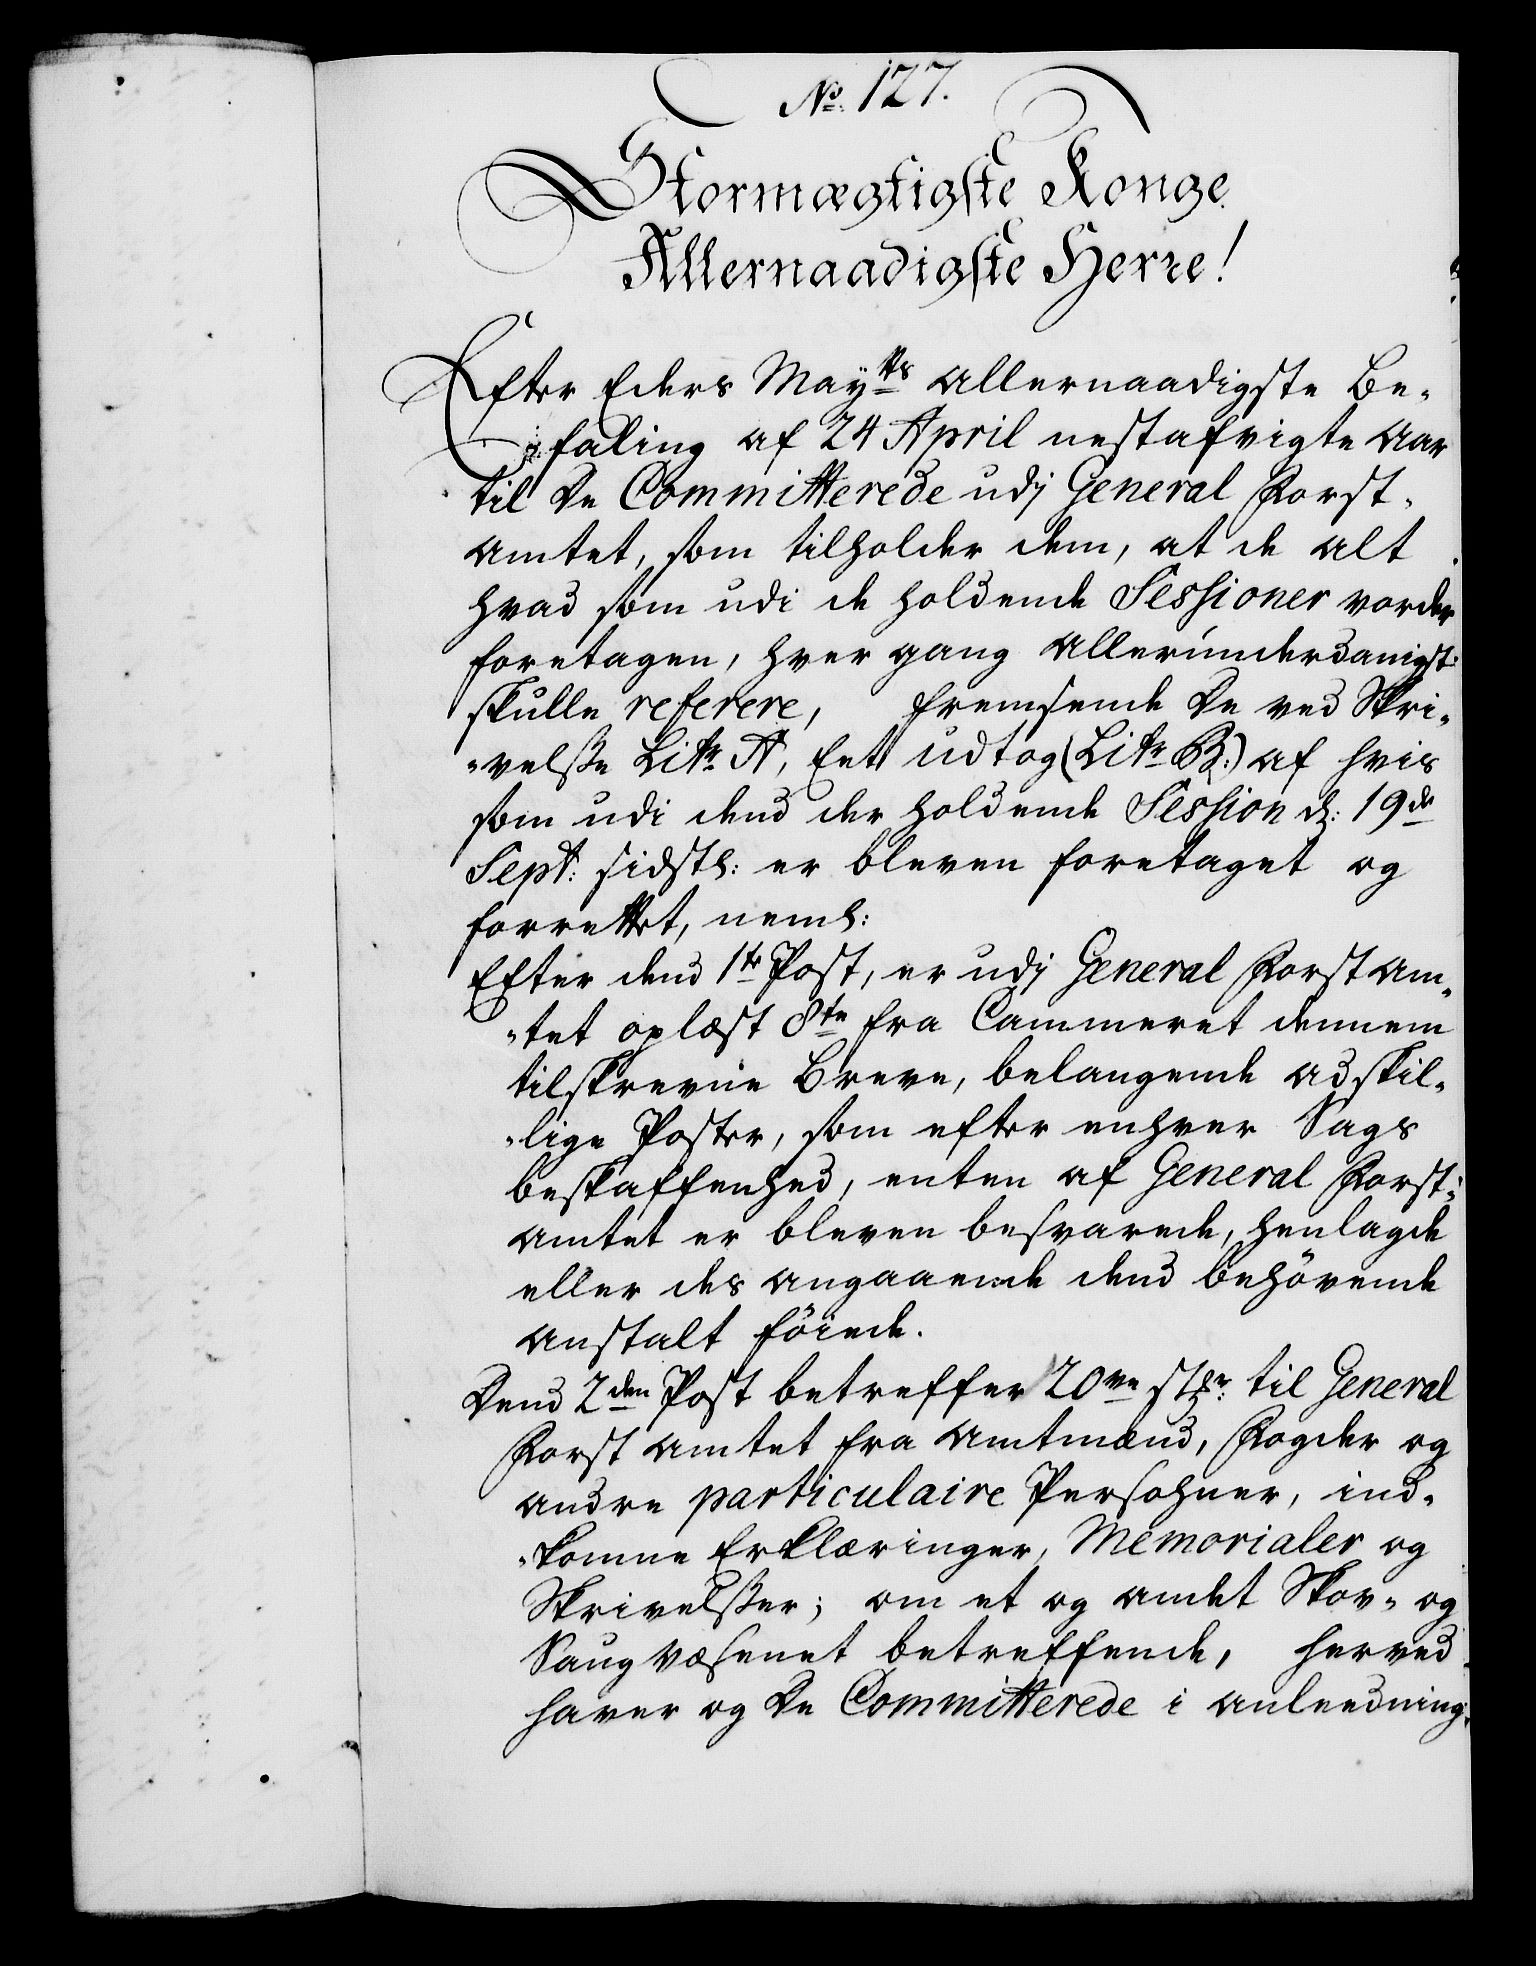 No. 127.
Stormægtigste Konge
Allernaadigste Herre!
Efter Eders Mayts allernaadigste Be-
faling af 24 April nestafvigte Aar
til De Committerede udj General Forst-
amtet, som tilholder dem, at de alt
hvad som udi de holdende Sessioner vorder
foretagen, hver gang allerunderdanigst:
skulle referere, fremsende De ved Skri-
-velsse Litr A, Eet udtog (Litr B:) af hvis
som udi dend der holdende Session d: 19de
Sept: sidstl: er bleven foretaget og
forrettet, neml:
Efter dend 1te Post, er udj General Forst Am-
-tet oplæst 8te fra Cammeret dennem
tilskrevne Breve, belangende adskil-
-lige Poster, som efter enhver Sags
beskaffenhed, enten af General Forst-
amtet er bleven besvarede, henlagde
eller des angaaende dend behövende
anstalt föiede.
Dend 2den Post betreffer 20ve stkr: til General
Forst Amtet fra Amtmænd, Fogder og
andre particulaire Persohner, ind-
-komne Erklæringer, Memorialer og
Skrivelsser; om et og andet Skov- og
Saugvæsenet betreffende, herved
haver og De Committerede i anleedning